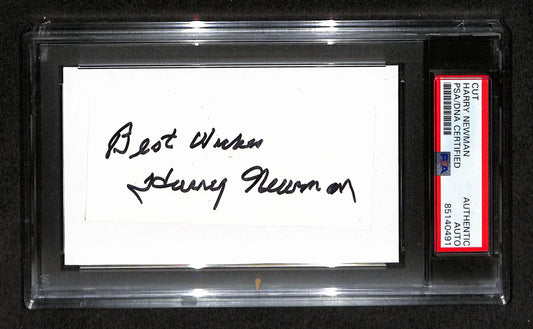 Best Wishes
Harry Newman
CUT
HARRY NEWMAN
PSA/DNA CERTIFIED
PSA
AUTHENTIC
AUTO
85140491